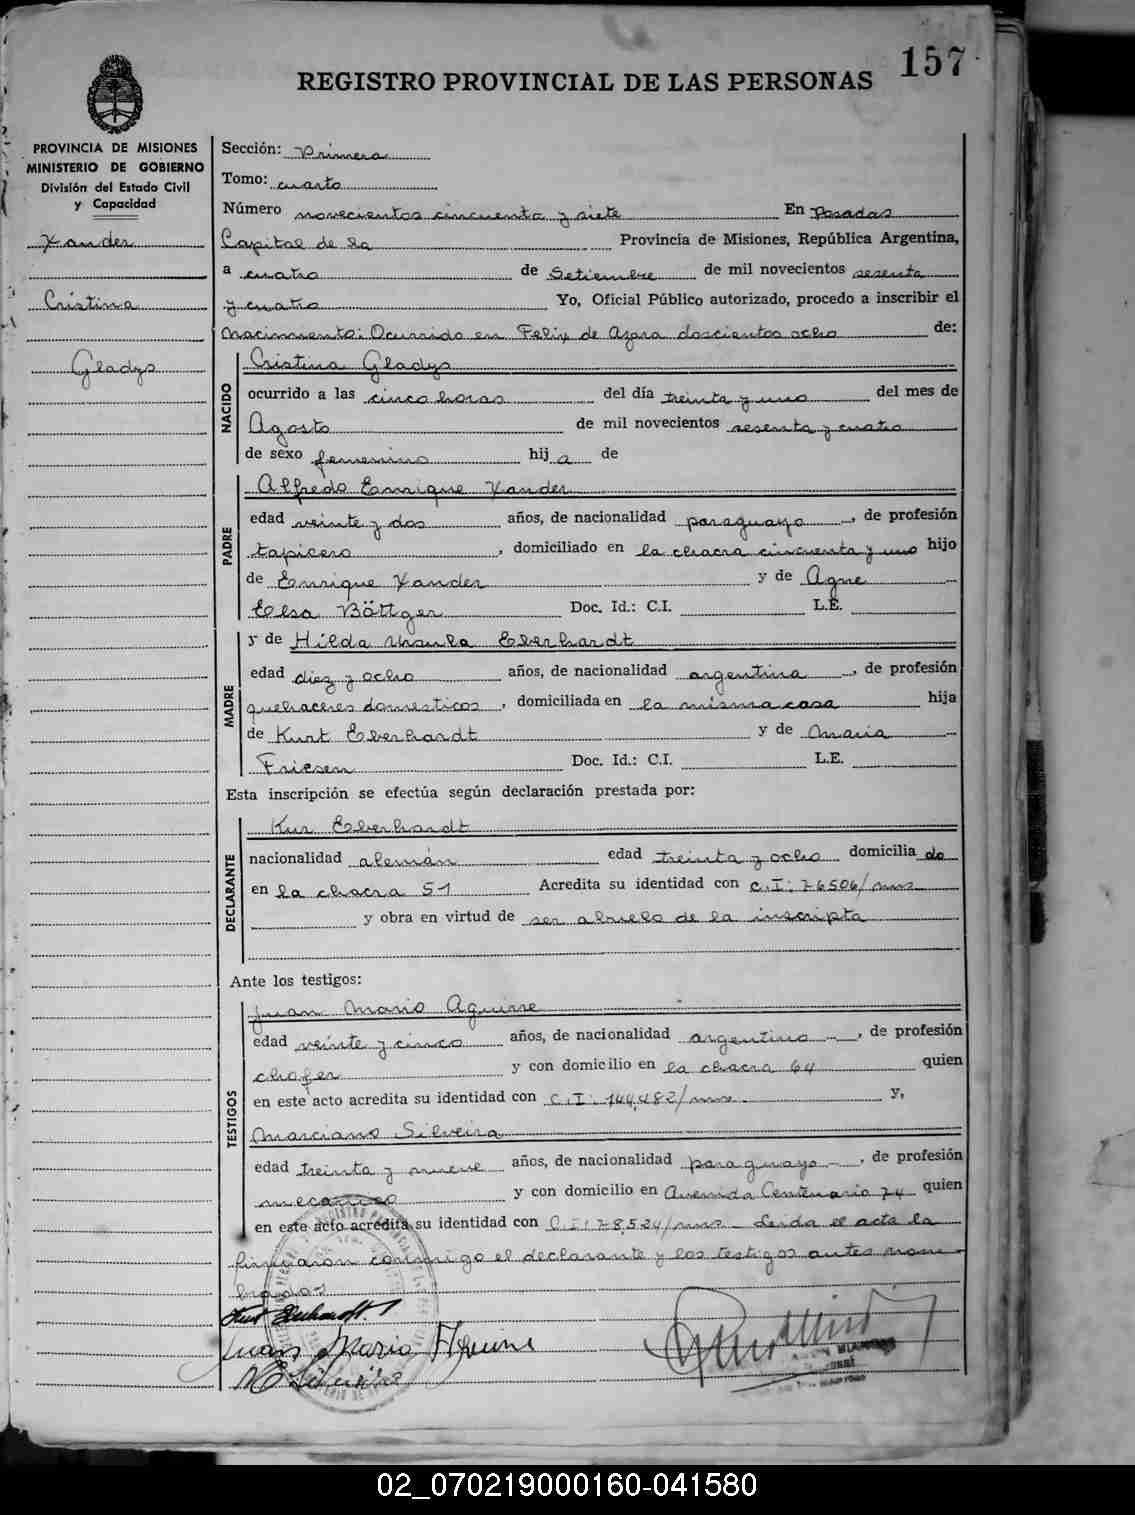 157
REGISTRO PROVINCIAL DE LAS PERSONAS
PROVINCIA DE MISIONES
MINISTERIO DE GOBIERNO
División del Estado Civil
y Capacidad
Xander
Cristina
Gladys
Sección: Primera
Tomo: cuarto
Número novecientos cincuenta y siete En Posadas
Capital de la Provincia de Misiones, República Argentina,
a cuatro de Setiembre de mil novecientos sesenta
y cuatro Yo, Oficial Público autorizado, procedo a inscribir el
Nacimiento: Ocurrido en Felix de Azara doscientos ocho de:
NACIDO
Cristina Gladys
ocurrido a las cinco horas del día treinta y uno del mes de
Agosto de mil novecientos sesenta y cuatro
de sexo femenino hij a de
PADRE
Alfredo Enrique Xander
edad veinte y dos años, de nacionalidad paraguayo, de profesión
tapicero, domiciliado en la chacra cincuenta y uno hijo
de Enrique Xander y de Agne
Elsa Böttger Doc. Id.: C.I. L.E.
MADRE
y de Hilda Ursula Eberhardt
edad diez y ocho años, de nacionalidad argentina, de profesión
quehaceres domesticos, domiciliada en la misma casa hija
de Kurt Eberhardt y de Maria
Friesen Doc. Id.: C.I. L.E.
Esta inscripción se efectúa según declaración prestada por:
DECLARANTE
Kur Eberhardt
nacionalidad alemán edad treinta y ocho domicilia do
en la chacra 51 Acredita su identidad con C.I: 76506/mns
y obra en virtud de ser abuelo de la inscripta
Ante los testigos:
TESTIGOS
Juan Mario Aguirre
edad veinte y cinco años, de nacionalidad argentino, de profesión
chofer y con domicilio en la chacra 64 quien
en este acto acredita su identidad con C.I: 144.482/mns. y,
Marciano Silveira
edad treinta y nueve años, de nacionalidad paraguayo, de profesión
mecanico y con domicilio en Avenida Centenario 74 quien
en este acto acredita su identidad con C.I: 78.524/mns. Leida el acta la
firmaron conmigo el declarante y los testigos antes nom-
brados
Kurt Eberhardt
Juan Mario Aguirre
M Silveira
02_070219000160-041580